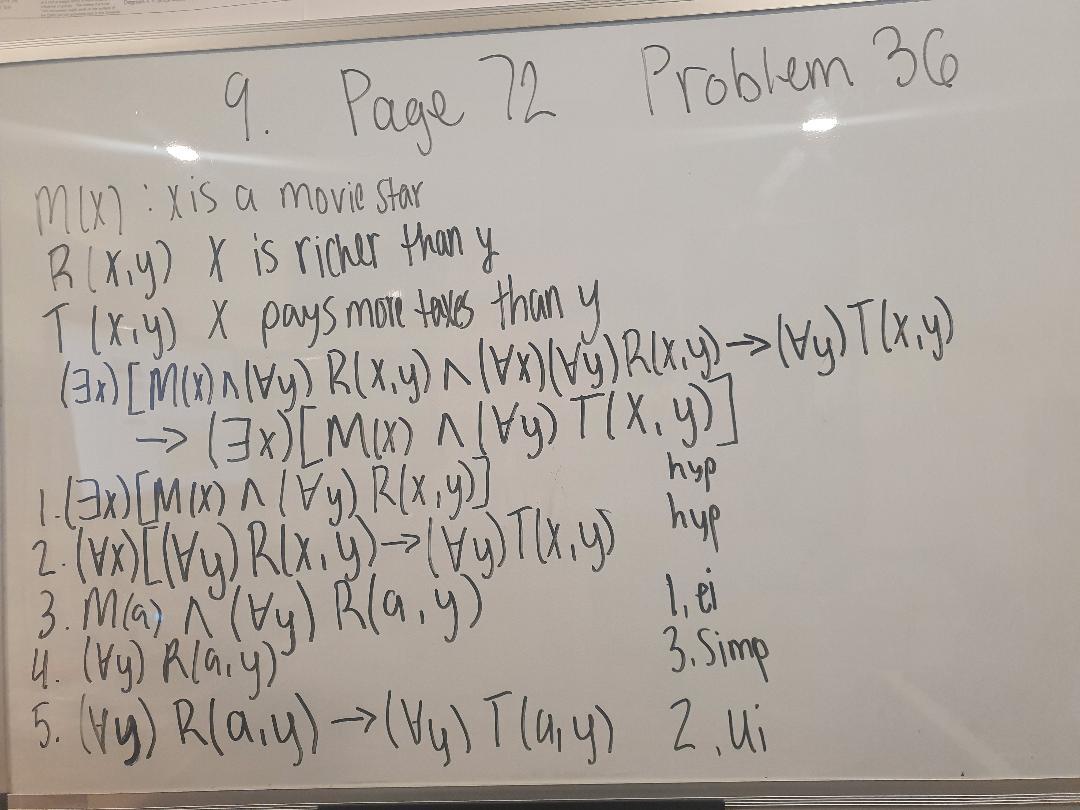 9. Page 72 Problem 36
M(x) : x is a movie star
R(x,y) X is richer than y
T(x,y) X pays more taxes than y
(∃x)[M(x)∧(∀y) R(x,y) ∧ (∀x)(∀y)R(x,y)→(∀y)T(x,y)
→ (∃x)[M(x) ∧ (∀y) T(x,y)]
1. (∃x)[M(x) ∧ (∀y) R(x,y)] hyp
2. (∀x)[(∀y) R(x,y)→(∀y)T(x,y) hyp
3. M(a) ∧ (∀y) R(a,y) 1, ei
4. (∀y) R(a,y) 3. Simp
5. (∀y) R(a,y)→(∀y) T(a,y) 2, ui